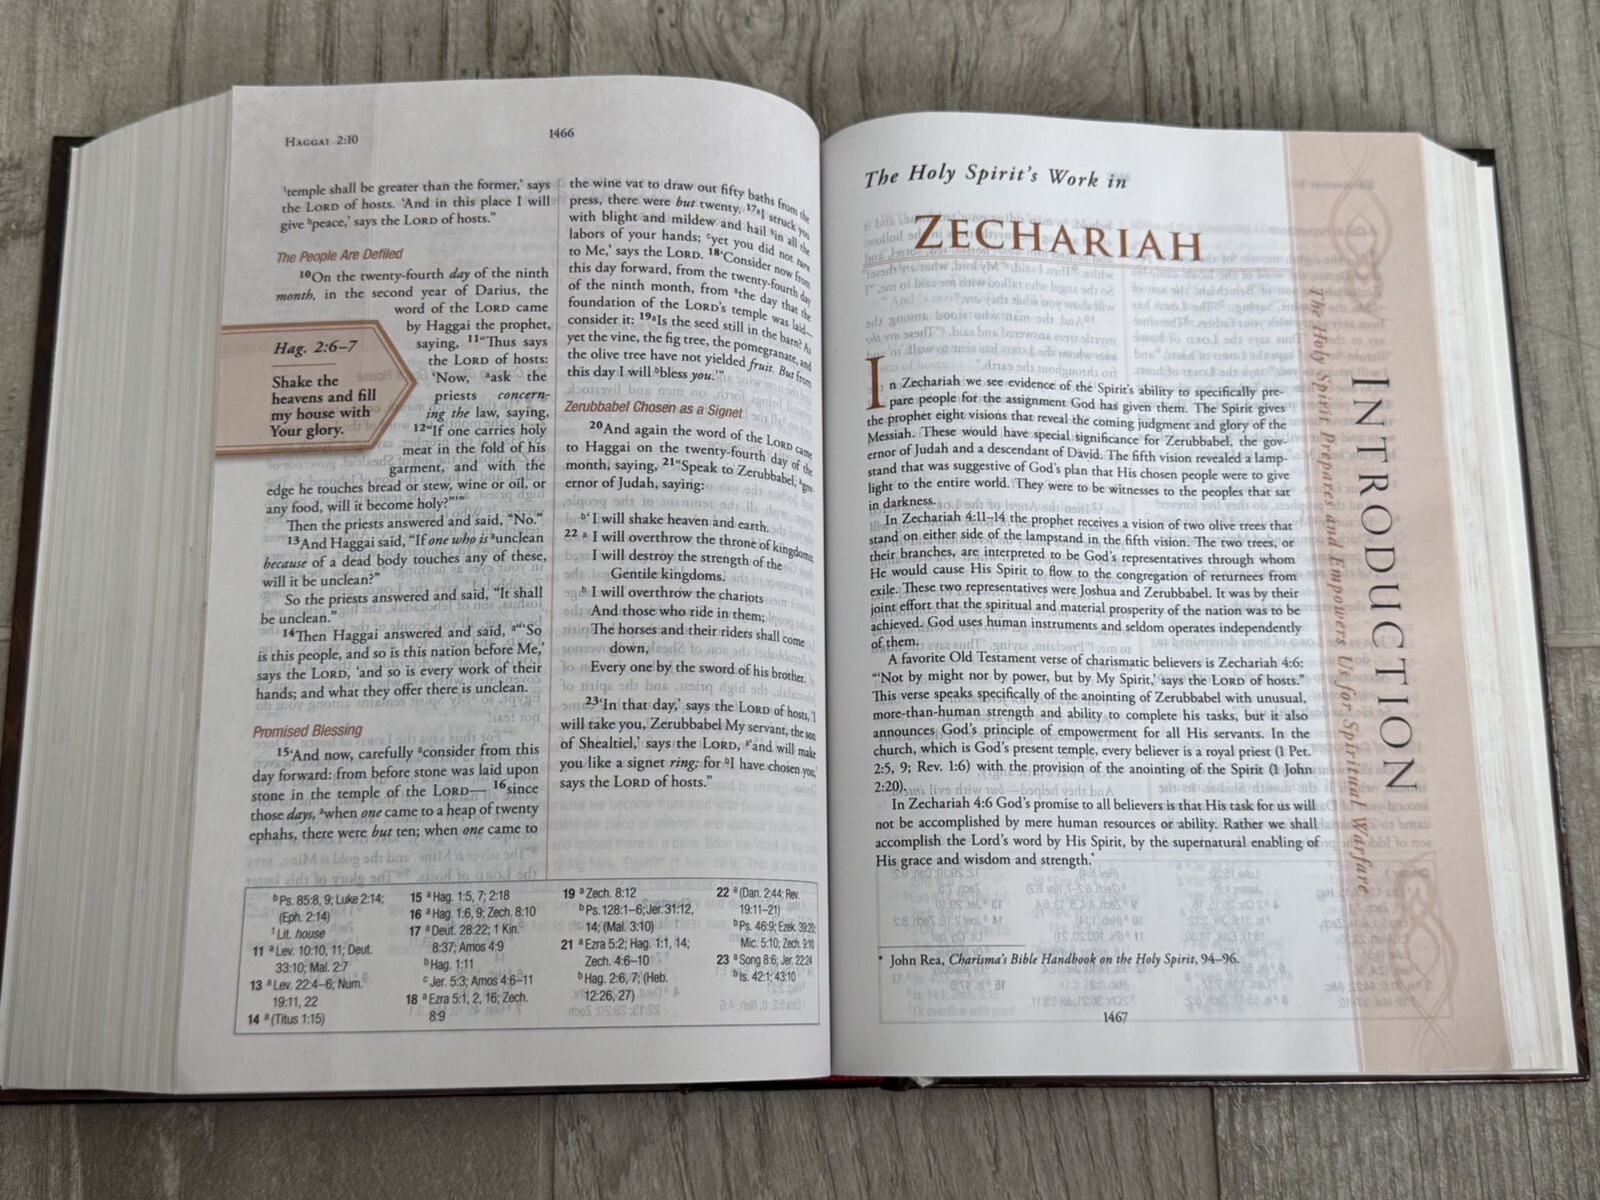 HAGGAI 2:10
1466
¹temple shall be greater than the former,’ says
the LORD of hosts. ‘And in this place I will
give ᵇpeace,’ says the LORD of hosts.”
The People Are Defiled
¹⁰On the twenty-fourth day of the ninth
month, in the second year of Darius, the
word of the LORD came
by Haggai the prophet,
saying, ¹¹“Thus says
the LORD of hosts:
‘Now, ᵃask the
priests concern-
ing the law, saying,
¹²“If one carries holy
meat in the fold of his
garment, and with the
edge he touches bread or stew, wine or oil, or
any food, will it become holy?”’”
Then the priests answered and said, “No.”
¹³And Haggai said, “If one who is ᵃunclean
because of a dead body touches any of these,
will it be unclean?”
So the priests answered and said, “It shall
be unclean.”
¹⁴Then Haggai answered and said, ᵃ“‘So
is this people, and so is this nation before Me,’
says the LORD, ‘and so is every work of their
hands; and what they offer there is unclean.
Promised Blessing
¹⁵‘And now, carefully ᵃconsider from this
day forward: from before stone was laid upon
stone in the temple of the LORD— ¹⁶since
those days, ᵃwhen one came to a heap of twenty
ephahs, there were but ten; when one came to
Hag. 2:6–7
Shake the
heavens and fill
my house with
Your glory.
the wine vat to draw out fifty baths from the
press, there were but twenty. ¹⁷ᵃI struck you
with blight and mildew and hail ᵇin all the
labors of your hands; ᶜyet you did not turn
to Me,’ says the LORD. ¹⁸‘Consider now from
this day forward, from the twenty-fourth day
of the ninth month, from ᵃthe day that the
foundation of the LORD’s temple was laid—
consider it: ¹⁹ᵃIs the seed still in the barn? As
yet the vine, the fig tree, the pomegranate, and
the olive tree have not yielded fruit. But from
this day I will ᵇbless you.’”
Zerubbabel Chosen as a Signet
²⁰And again the word of the LORD came
to Haggai on the twenty-fourth day of the
month, saying, ²¹“Speak to Zerubbabel, ᵃgov-
ernor of Judah, saying:
ᵇ‘I will shake heaven and earth.
22 ᵃ I will overthrow the throne of kingdoms;
I will destroy the strength of the
Gentile kingdoms.
ᵇ I will overthrow the chariots
And those who ride in them;
The horses and their riders shall come
down,
Every one by the sword of his brother.
²³‘In that day,’ says the LORD of hosts, ‘I
will take you, Zerubbabel My servant, the son
of Shealtiel,’ says the LORD, ᵃ‘and will make
you like a signet ring; for ᵇI have chosen you,’
says the LORD of hosts.”
ᵇPs. 85:8, 9; Luke 2:14;
(Eph. 2:14)
¹Lit. house
11 ᵃLev. 10:10, 11; Deut.
33:10; Mal. 2:7
13 ᵃLev. 22:4–6; Num.
19:11, 22
14 ᵃ(Titus 1:15)
15 ᵃHag. 1:5, 7; 2:18
16 ᵃHag. 1:6, 9; Zech. 8:10
17 ᵃDeut. 28:22; 1 Kin.
8:37; Amos 4:9
ᵇHag. 1:11
ᶜJer. 5:3; Amos 4:6–11
18 ᵃEzra 5:1, 2, 16; Zech.
8:9
19 ᵃZech. 8:12
ᵇPs. 128:1–6; Jer. 31:12,
14; (Mal. 3:10)
21 ᵃEzra 5:2; Hag. 1:1, 14;
Zech. 4:6–10
ᵇHag. 2:6, 7; (Heb.
12:26, 27)
22 ᵃ(Dan. 2:44; Rev.
19:11–21)
ᵇPs. 46:9; Ezek. 39:20;
Mic. 5:10; Zech. 9:10
23 ᵃSong 8:6; Jer. 22:24
ᵇIs. 42:1; 43:10
The Holy Spirit’s Work in
ZECHARIAH
In Zechariah we see evidence of the Spirit’s ability to specifically pre-
pare people for the assignment God has given them. The Spirit gives
the prophet eight visions that reveal the coming judgment and glory of the
Messiah. These would have special significance for Zerubbabel, the gov-
ernor of Judah and a descendant of David. The fifth vision revealed a lamp-
stand that was suggestive of God’s plan that His chosen people were to give
light to the entire world. They were to be witnesses to the peoples that sat
in darkness.
In Zechariah 4:11–14 the prophet receives a vision of two olive trees that
stand on either side of the lampstand in the fifth vision. The two trees, or
their branches, are interpreted to be God’s representatives through whom
He would cause His Spirit to flow to the congregation of returnees from
exile. These two representatives were Joshua and Zerubbabel. It was by their
joint effort that the spiritual and material prosperity of the nation was to be
achieved. God uses human instruments and seldom operates independently
of them.
A favorite Old Testament verse of charismatic believers is Zechariah 4:6:
“‘Not by might nor by power, but by My Spirit,’ says the LORD of hosts.”
This verse speaks specifically of the anointing of Zerubbabel with unusual,
more-than-human strength and ability to complete his tasks, but it also
announces God’s principle of empowerment for all His servants. In the
church, which is God’s present temple, every believer is a royal priest (1 Pet.
2:5, 9; Rev. 1:6) with the provision of the anointing of the Spirit (1 John
2:20).
In Zechariah 4:6 God’s promise to all believers is that His task for us will
not be accomplished by mere human resources or ability. Rather we shall
accomplish the Lord’s word by His Spirit, by the supernatural enabling of
His grace and wisdom and strength.*
* John Rea, Charisma’s Bible Handbook on the Holy Spirit, 94–96.
1467
The Holy Spirit Prepares and Empowers Us for Spiritual Warfare
INTRODUCTION